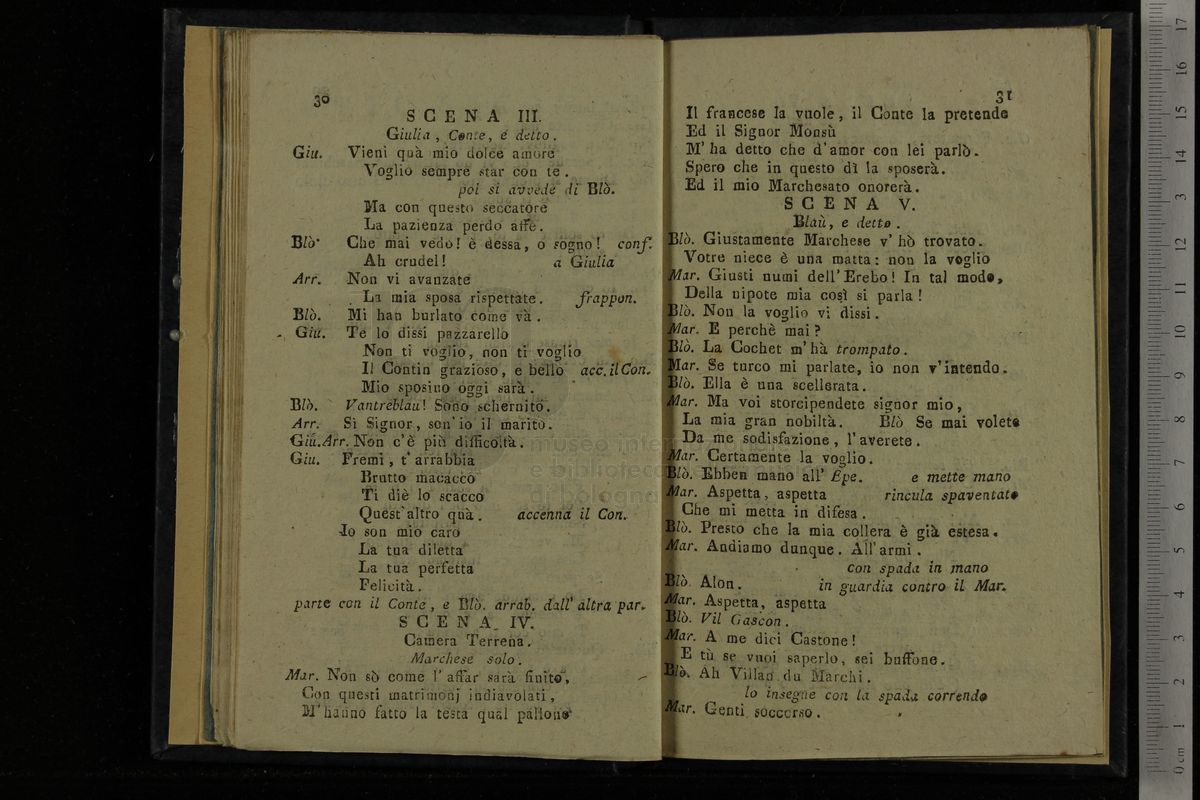 30
SCENA III.
Giulia, Conte, e detto.
Giu. Vieni quà mio dolce amore
Voglio sempre star con te.
poi si avvede di Blò.
Ma con questo seccatore
La pazienza perdo affè.
Blò. Che mai vedo! è dessa, o sogno! conf.
Ah crudel! a Giulia
Arr. Non vi avanzate
La mia sposa rispettate. frappon.
Blò. Mi han burlato come và.
Giu. Te lo dissi pazzarello
Non ti voglio, non ti voglio
Il Contin grazioso, e bello acc. il Con.
Mio sposino oggi sarà.
Blò. Vantreblau! Sono schernito.
Arr. Sì Signor, son' io il marito.
Giu. Arr. Non c'è più difficoltà.
Giu. Fremi, t'arrabbia
Brutto macacco
Ti diè lo scacco
Quest'altro quà. accenna il Con.
Io son mio caro
La tua diletta
La tua perfetta
Felicità.
parte con il Conte, e Blò. arrab. dall' altra par.
SCENA IV.
Camera Terrena.
Marchese solo.
Mar. Non sò come l'affar sarà finito,
Con questi matrimonj indiavolati,
M'hanno fatto la testa qual pallone
31
Il francese la vuole, il Conte la pretende
Ed il Signor Monsù
M'ha detto che d'amor con lei parlò.
Spero che in questo dì la sposerà.
Ed il mio Marchesato onorerà.
SCENA V.
Blaù, e detto.
Blò. Giustamente Marchese v' hò trovato.
Votre niece è una matta: non la voglio
Mar. Giusti numi dell'Erebo! In tal modo,
Della nipote mia così si parla!
Blò. Non la voglio vi dissi.
Mar. E perchè mai?
Blò. La Cochet m'hà trompato.
Mar. Se turco mi parlate, io non v'intendo.
Blò. Ella è una scellerata.
Mar. Ma voi storcipendete signor mio,
La mia gran nobiltà. Blò Se mai volete
Da me sodisfazione, l'averete.
Mar. Certamente la voglio.
Blò. Ebben mano all' Épe. e mette mano
Mar. Aspetta, aspetta rincula spaventato
Che mi metta in difesa.
Blò. Presto che la mia collera è già estesa.
Mar. Andiamo dunque. All'armi.
con spada in mano
Blò. Alon. in guardia contro il Mar.
Mar. Aspetta, aspetta
Blò. Vil Gascon.
Mar. A me dici Castone!
E tù se vuoi saperlo, sei buffone.
Blò. Ah Villan du Marchi.
lo insegue con la spada correndo
Mar. Genti soccorso.